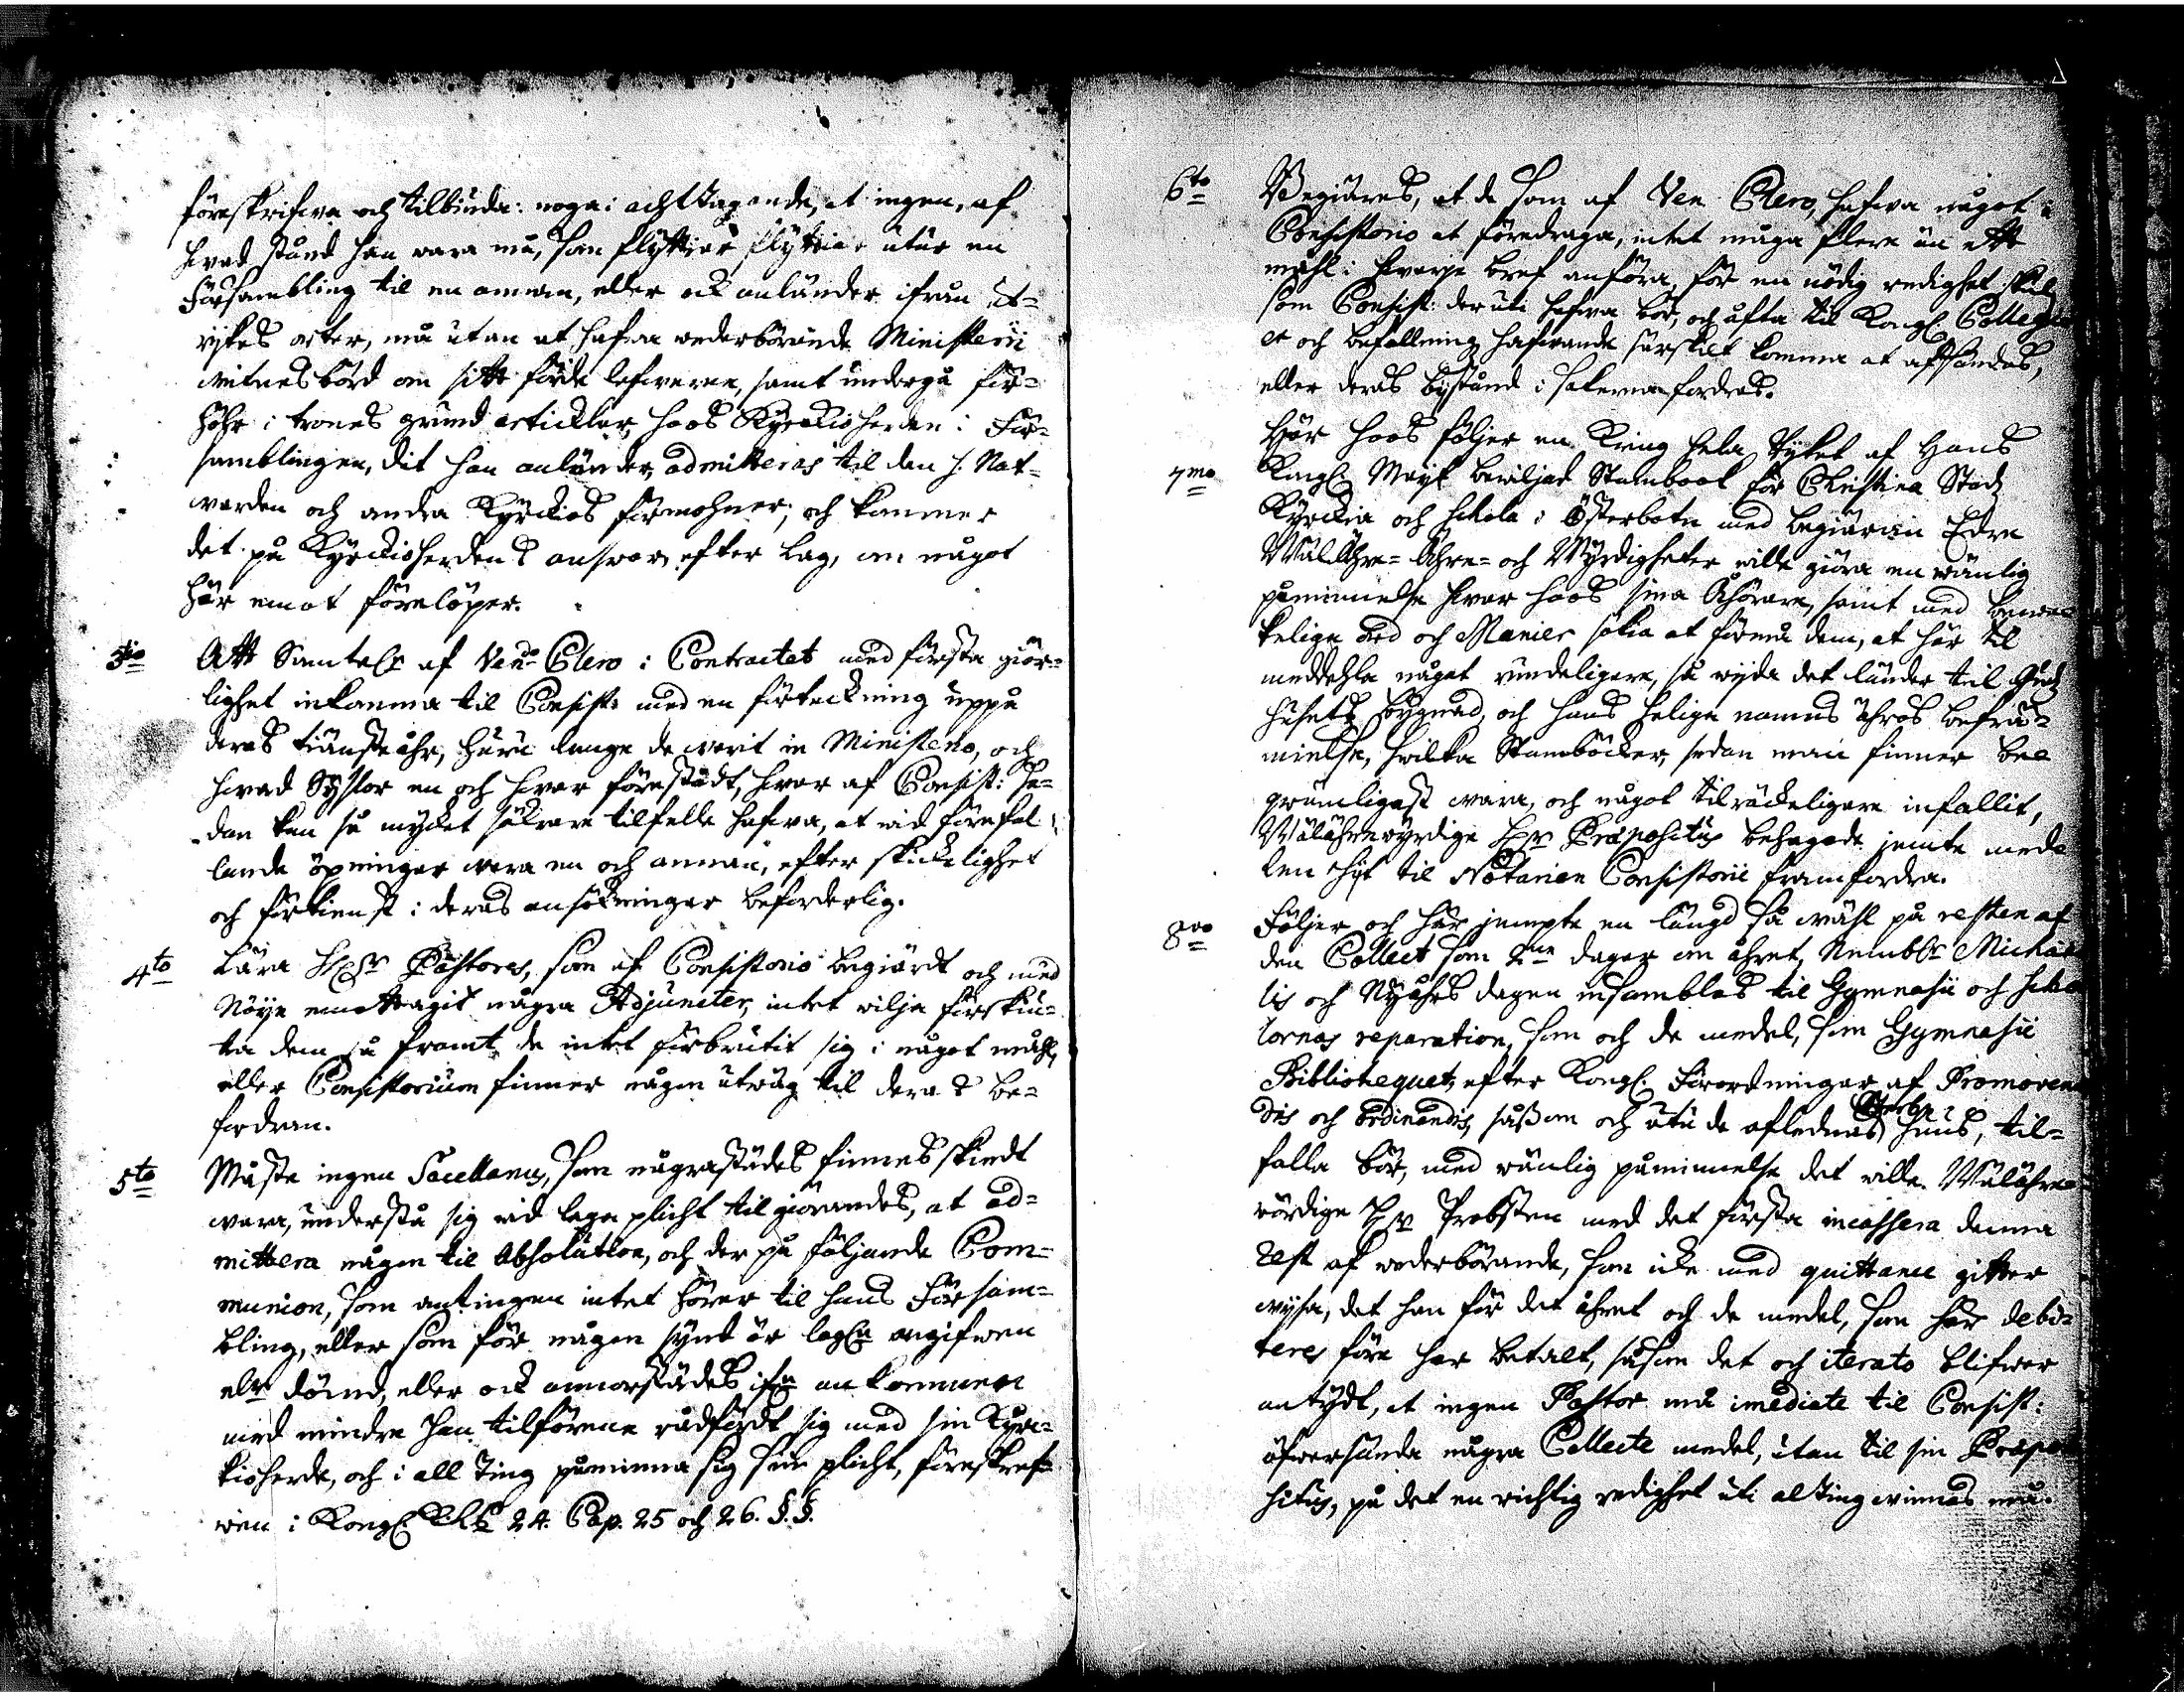 föreskrifwa och tilbinda: noga i acht tagande, at ingen, af
hwad stånd han wara må, som flyttiar flyttiar utur en
Försambling til en annan, eller ock anländer ifrån ut=
rykes orter, må utan at hafwa wederbörande Ministerii
witnesbörd om sitt förde lefwerne, samt undergå för=
höhr i trones grund articklar, hoos Kyrckioherden i För=
samblingen, dit han anländer, admitteras til den H. Nat=
warden och andra Kyrckios förmohner; och kommer
det på Kyrckioherdens answar, efter Lag, om något
här emot förelöper.
3tio Att Samtel. af Ven:do Clero i Contractet med första giör=
lighet inkomma til Consist: med en förteckning uppå
deras tiänste åhr, huru länge de warit in Ministerio, och
hwad Sysslor en och hwar förestådt, hwar af Consist: se=
dan kan så mycket säkrare tilfelle hafwa, at wid förefal
lande öpningar wara en och annan, efter skickelighet
och förtienst i deras ansökningar beforderlig.
4to Lära H:r Pastores, som af Consistorio begiärdt och med
Nöye emottagit några Adjuncter, intet wilja förskiu=
ta dem så framt de intet förbrutit sig i något måhl,
eller Consistorium finner någon utwäg til deras be=
fordran.
5to Måste ingen Sacellanus, som någrastädes finnes skiedt
wara, understå sig wid laga plicht tilgiörandes, at ad=
mittera någon til Absolution, och der på följande Com=
munion, som antingen intet hörer til hans Försam=
bling, eller som för någon synd är lagl:n angifwen
elr dömd, eller ock annorstädes ifrån ankommen
med mindre han tilförene rådfördt sig med sin Kyrc=
kioherde, och i all ting påminna sig sin plicht, föreskref=
wen i Kongl 24. Cap. 25 och 26. §.§.
6to Begiäres, at de som af Ven Clero, hafwa något i
Consistorio at föredraga, intet måga flere än ett
måhl i hwarje bref anföra, för en nödig redighet skul
som Consist: der uti hafwa bör, och ofta til Kongl Colleg
er och befallning hafwande särskilt komma at afsändas,
eller deras bystånd i sakerna fordras.
Här hoos följer en kring hela Ryket af Hans
7mo Kongl Mayt bewiljad Stambook för Christina Stadz
Kyrckia och schola i Österbotn med begiäran Edre
Wäl Ähre= Ähre= och Wyrdigheter wille giöra en wänlig
påminnelse hwar hoos sina Åhörare, samt med bewe
kelige ord och Manier sökia at förmå dem, at här til
meddehla något rundeligare, så wyda det länder til Gudz
husetz bygnad, och hans helige namns ähras befräm=
mielse, hwilka Stamböcker, sedan man finner bee
qwämligast wara, och något tilräckeligare infallit,
Wälährewyrdige H:r Præpositus behagade jemte mede
len hyt til Notarien Consistorii framfordra.
8vo Följer och här jempte en längd så wähl på resten af
den Collect som 2ne dagar om åhret, Nembl:n Michae
lis och Nyåhrs dagen insamblas til Gymnasii och schو
lornas reparation, som och de medel, som Gymnasii
Bibliotequet, efter Kongl. Förordningar af Promoven
dis och Ordinandis, såsom och utu de aflednas Sterb huus, til=
falla bör, med wänlig påminnelse det wille Wälähre
wördige H:r Probsten med det första incassera denna
rest af wederbörande, som icke med quittance gitter
wysa, det han för det åhret och de medel, som här debi=
teres före har betalt, såsom det och iterato blifwer
antydt, at ingen Pastor må imediate til Consist:
öfwersända några Collecte medel, utan til sin Præpo
situs, på det en richtig redighet uti alting winnas må.